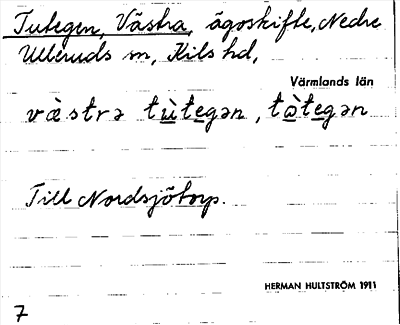 Tutegen, Västra, ägoskifte, Nedre
Ulleruds sn, Kils hd,
Värmlands län
västrə tùtegən, tàtegən
Till Nordsjötorp.
HERMAN HULTSTRÖM 1911
7